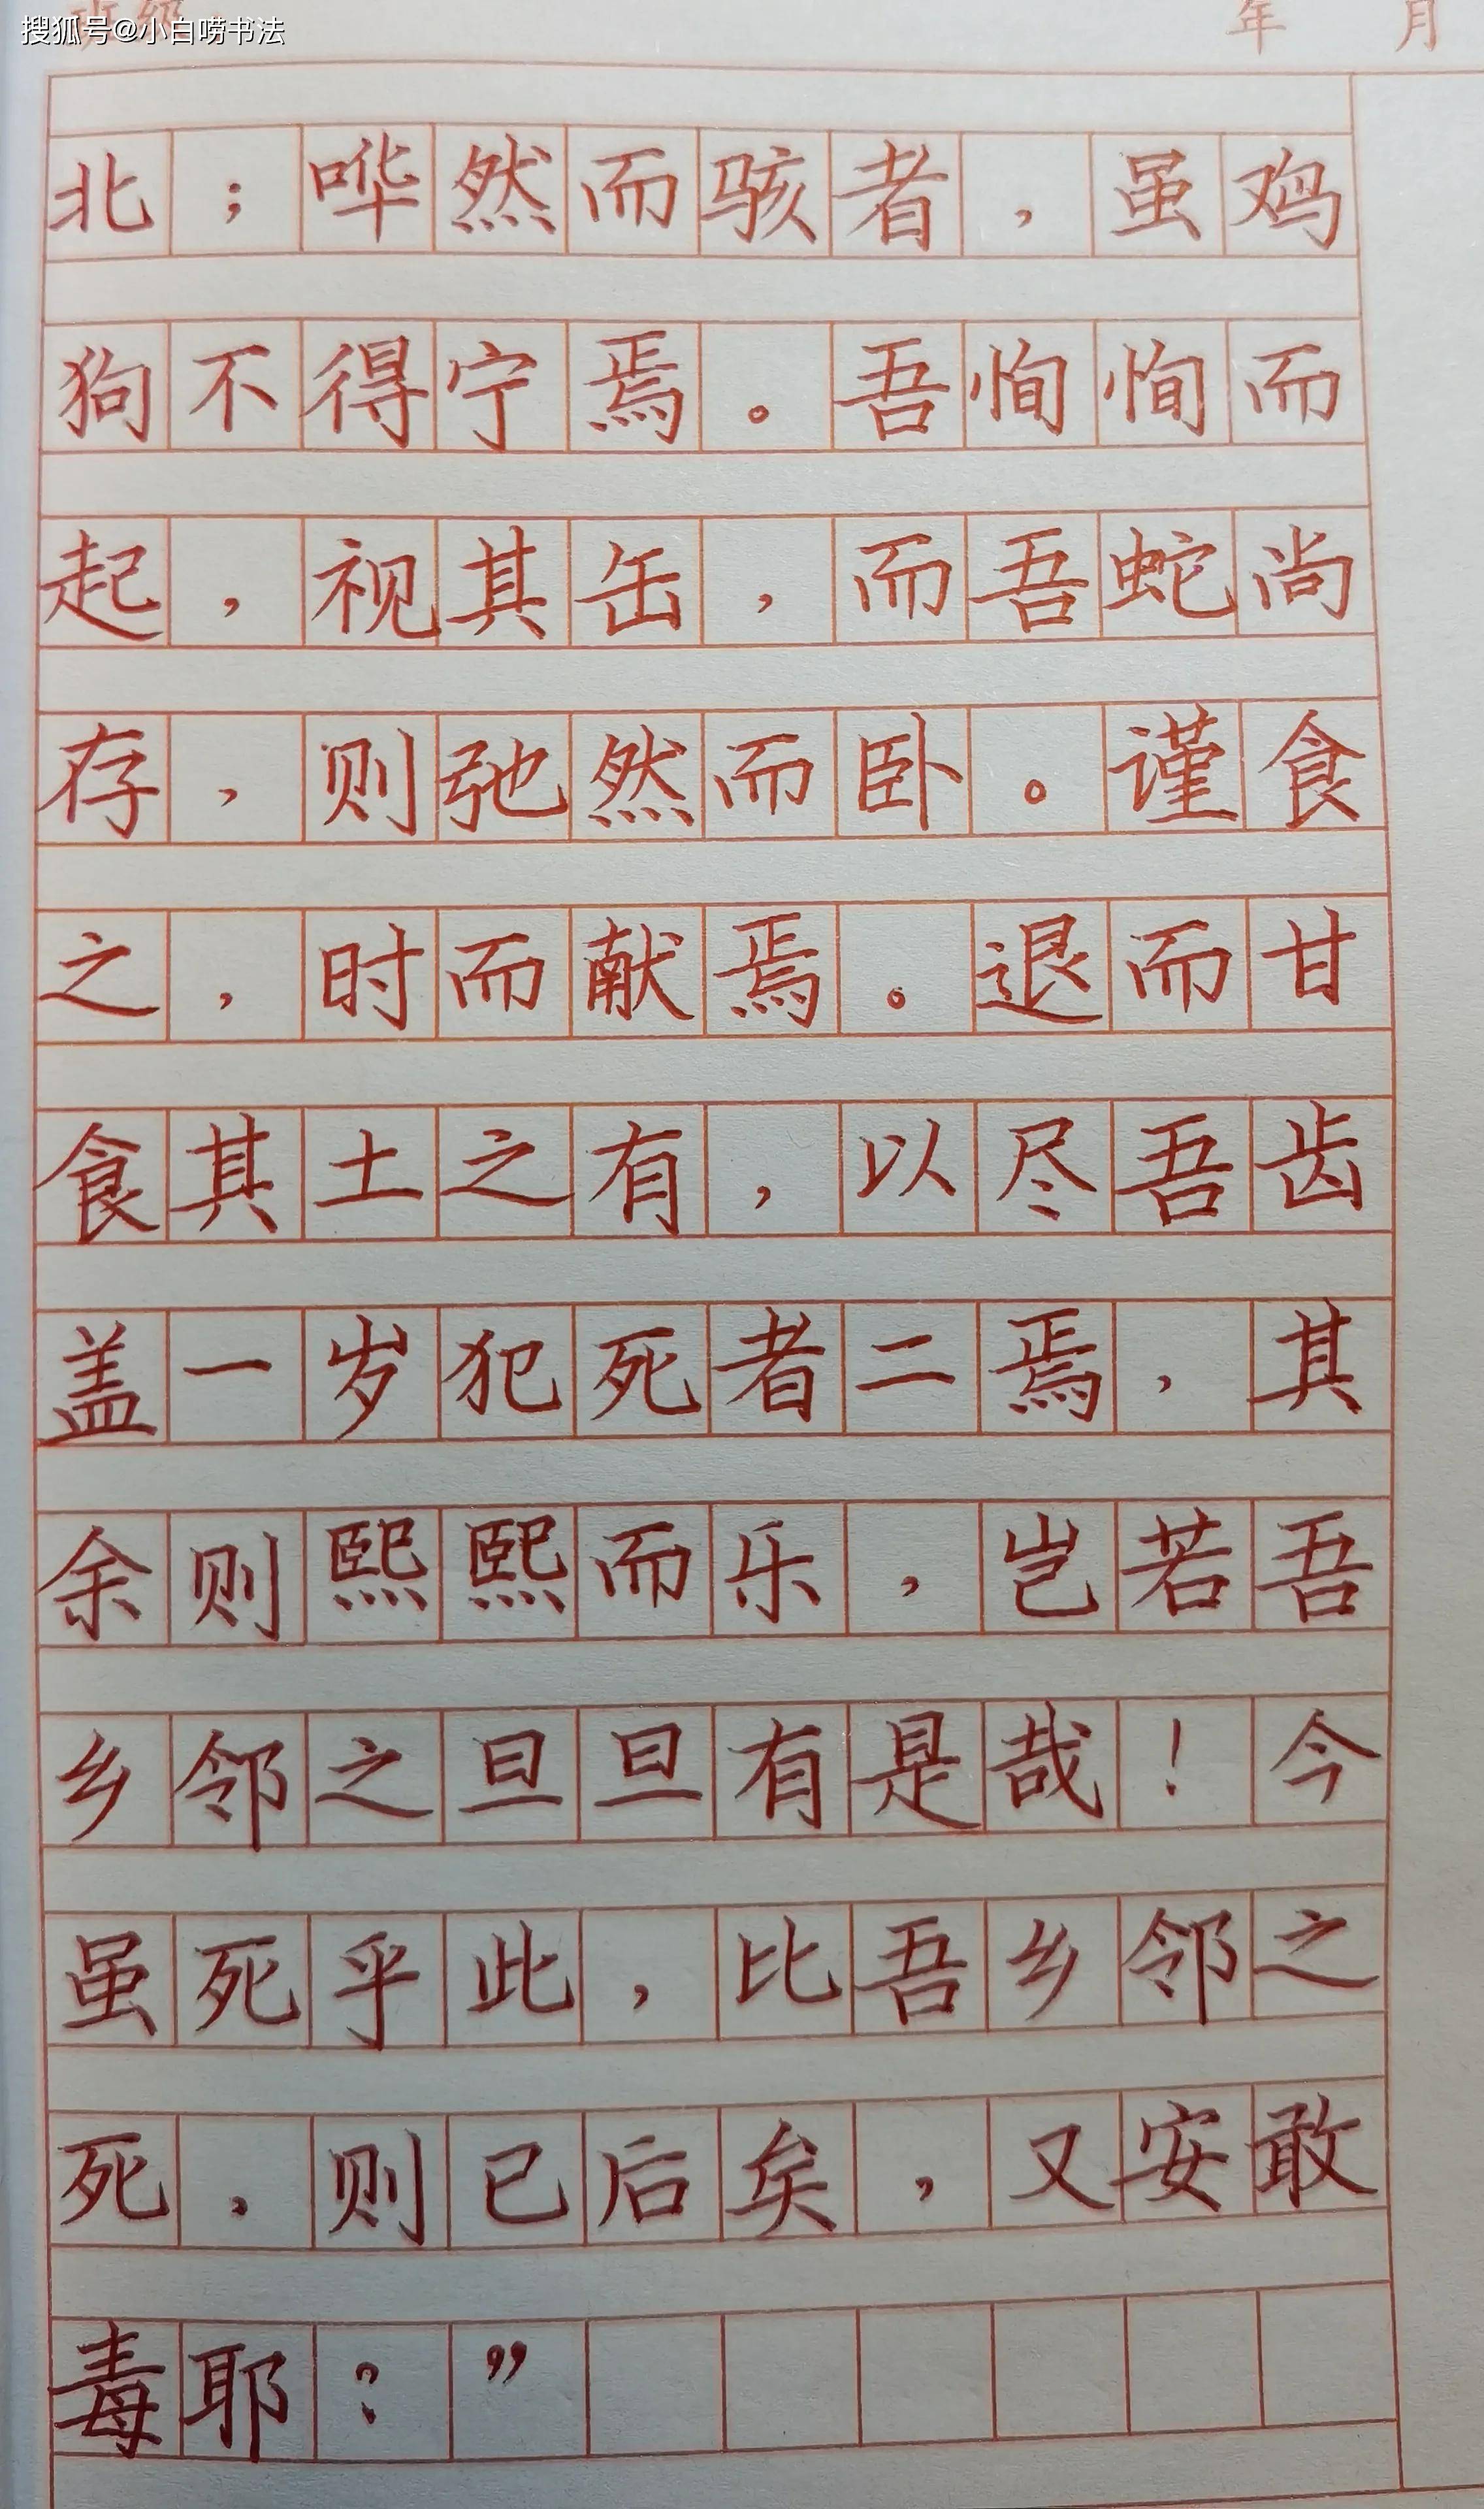 搜狐号@小白唠书法
班级:
年 月
北；哗然而骇者，虽鸡
狗不得宁焉。吾恂恂而
起，视其缶，而吾蛇尚
存，则弛然而卧。谨食
之，时而献焉。退而甘
食其土之有，以尽吾齿
盖一岁犯死者二焉，其
余则熙熙而乐，岂若吾
乡邻之旦旦有是哉！今
虽死乎此，比吾乡邻之
死，则已后矣，又安敢
毒耶？”